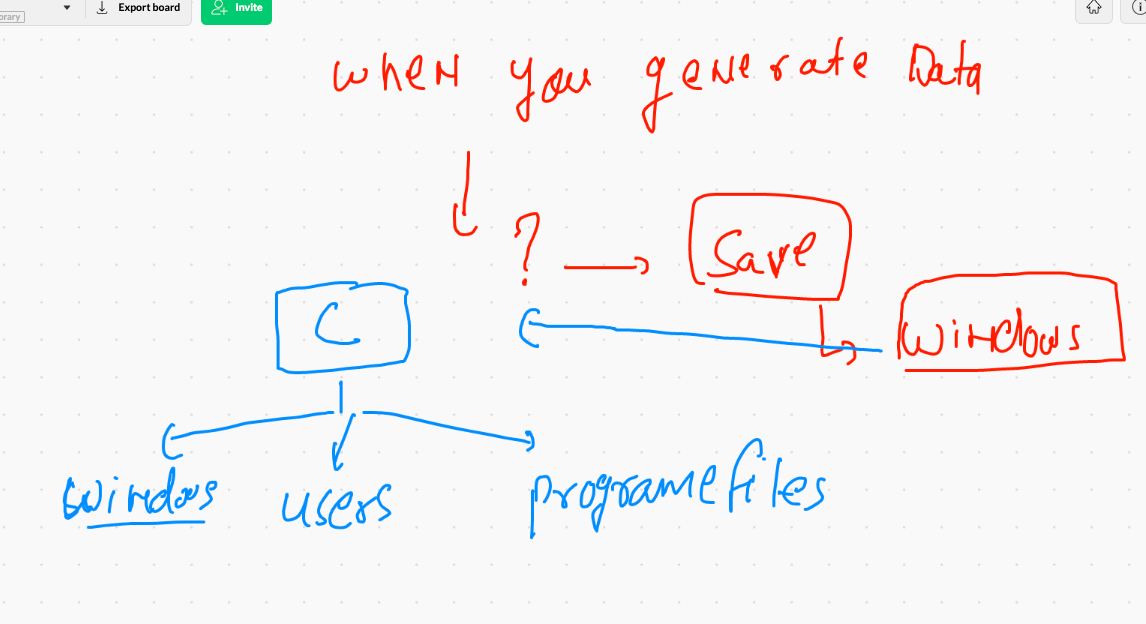 Export board
Invite
when you generate Data
?
Save
C
windows
windos
users
programefiles